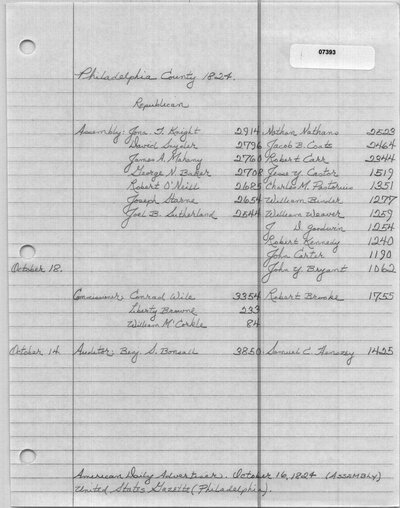 07393
Philadelphia County 1824.
Republican
Assembly: Jona. T. Knight 2914 Nathan Nathans 2523
David Snyder 2796 Jacob B. Coats 2464
James A. Mahany 2760 Robert Carr 2344
George N. Baker 2708 Jesse Y. Castor 1519
Robert O'Neill 2685 Charles M. Pastorius 1351
Joseph Starne 2654 William Binder 1277
Joel B. Sutherland 2544 William Weaver 1259
J D. Goodwin 1254
Robert Kennedy 1240
John Carter 1190
October 18. John Y. Bryant 1062
Commissioner: Conrad Wile 3354 Robert Brooke 1755
Liberty Browne 233
William McCorkle 84
October 14. Auditor: Benj. S. Bonsall 3850 Samuel C. 1425
American Daily Advertiser. October 16, 1824 (ASSEMBLY)
United States Gazette (Philadelphia).